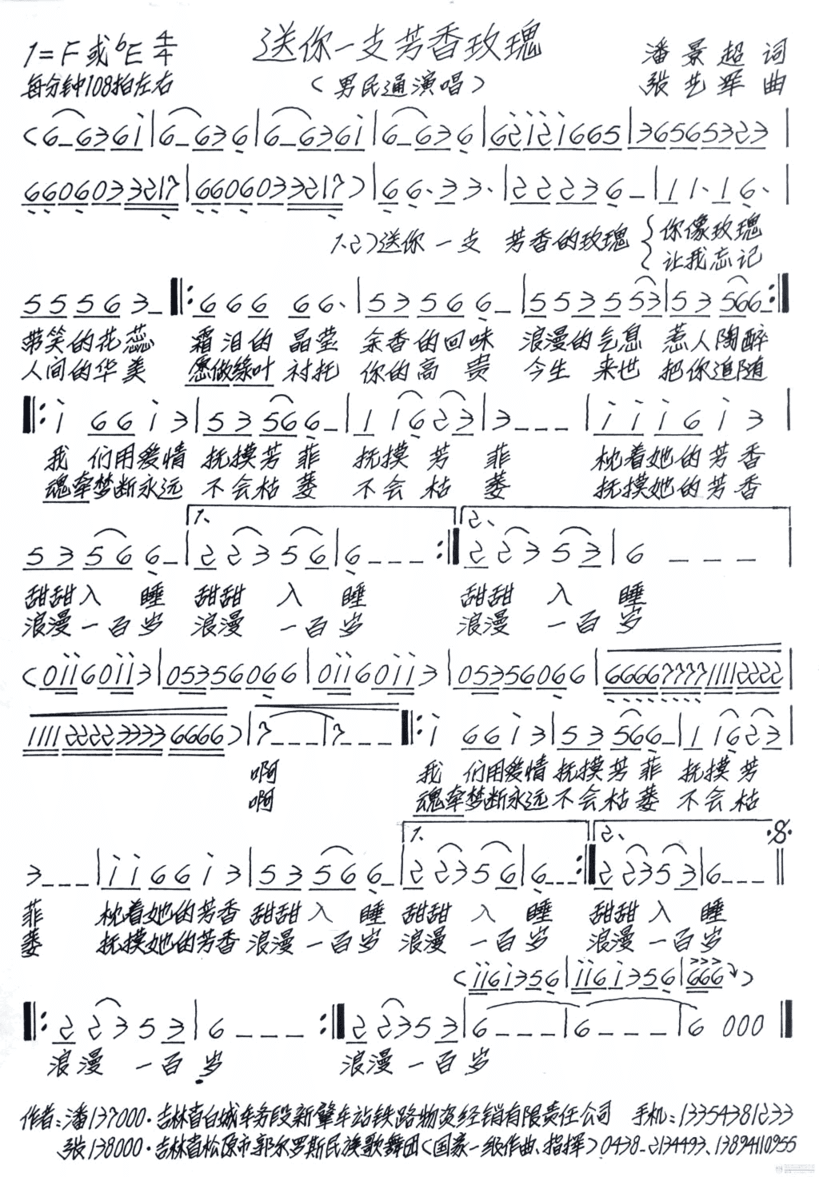 送你一支芳香玫瑰
1=F或♭E 4/4
潘景超 词
每分钟108拍左右
（男民通演唱）
张艺军 曲
(6_6361|6_636|6_6361|6_636|62121665|36565323|
66060333217|66060333217)|66、33、|22236_|11、16、|
1.2.)送你 一支 芳香的玫瑰 {你像玫瑰
让我忘记
55563_‖:666 66、|53566_|5535 53|53566_:‖
带笑的花蕊 霜泪的 晶莹 余香的回味 浪漫的气息 惹人陶醉
人间的华美 愿做绿叶 衬托 你的高 贵 今生 来世 把你追随
‖:i 66i3|53566_|116 23|3___|iii6i3|
我 们用爱情 抚摸芳 菲 抚摸 芳 菲 枕着她的芳香
魂牵梦断永远 不会枯 萎 不会 枯 萎 抚摸她的芳香
1、 2、
53566_|22356|6___:‖22353|6 _ _ _|
甜甜入 睡 甜甜 入 睡 甜甜 入 睡
浪漫一百岁 浪漫 一百岁 浪漫 一百岁
(0ii60ii3|05356066|0ii60ii3|05356066|6666777711112222|
1111222233336666)|3___|3___‖:i 66i3|53566_|116 23|
啊 我 们用爱情 抚摸芳 菲 抚摸 芳
啊 魂牵梦断永远 不会枯 萎 不会 枯
1、 2、
3___|ii66i3|53566_|22356|6___:‖22353|6___‖
菲 枕着她的芳香 甜甜 入 睡 甜甜 入 睡 甜甜 入 睡
萎 抚摸她的芳香 浪漫 一百岁 浪漫 一百岁 浪漫 一百岁
(ii6i356|ii6i356|666)
‖:22353|6___:‖22353|6___|6___|6000‖
浪漫 一百 岁 浪漫 一百 岁
作者:潘137000·吉林省白城车务段新肇车站铁路物资经销有限责任公司 手机:13354381233
张138000·吉林省松原市郭尔罗斯民族歌舞团(国家一级作曲、指挥)0438-2134493、13894110955